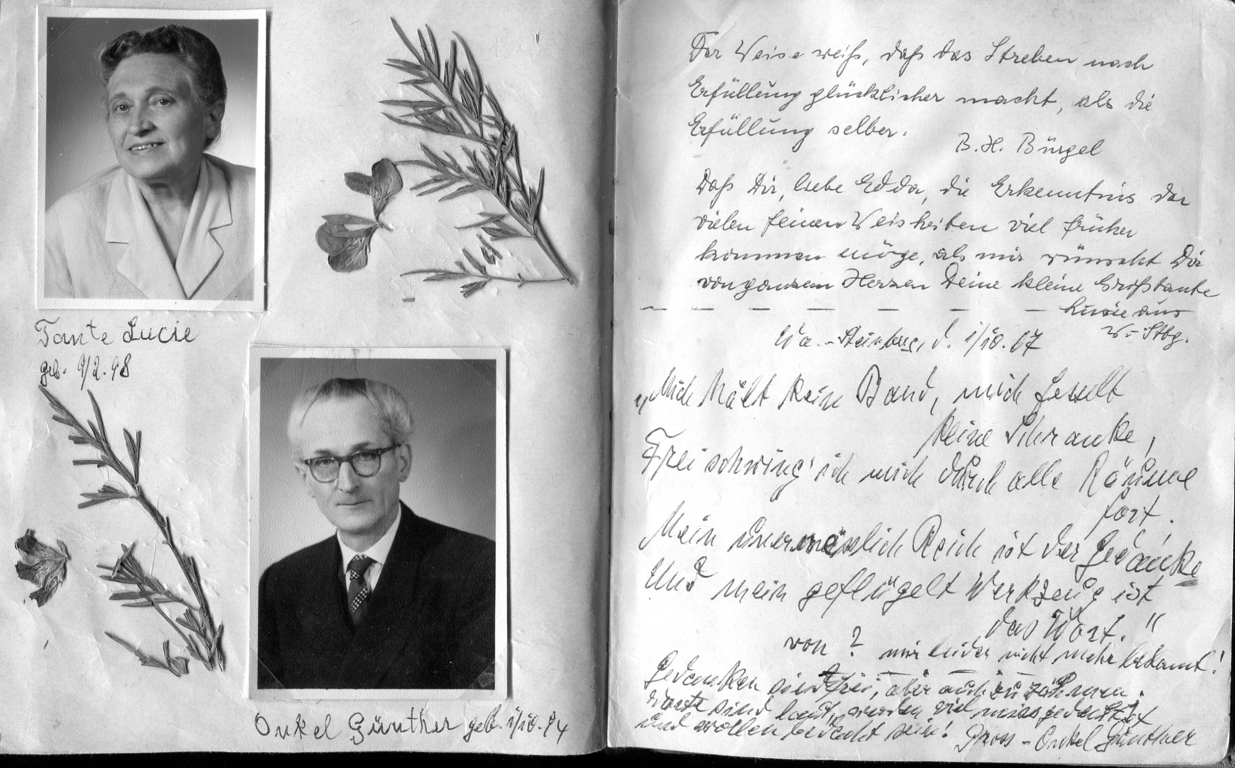 Tante Lucie
geb. 9/2.98
Onkel Günther geb. 1/10.
Der Weise weiß, daß das Streben nach
Erfüllung glücklicher macht, als die
Erfüllung selber.
B. H. Bürgel
Daß Dir, liebe Edda, die Erkenntnis der
vielen feinen Weisheiten viel früher
kommen möge, als mir wünscht Dir
von ganzem Herzen Deine kleine Großtante
aus
W.-Stbg.
d. 1/10.67
"Mich hält kein Band, mich fesselt
keine Schranke,
Frei schwing' ich mich durch alle Räume
fort.
Mein unermeslich Reich ist der Gedanke
Und mein geflügelt Werkzeug ist
das Wort."
von? mir leider nicht mehr bekannt!
Gedanken sind frei, aber auch zu zähmen.
Worte sind laut, werden viel
und wollen bedacht sein! Gross-Onkel Günther